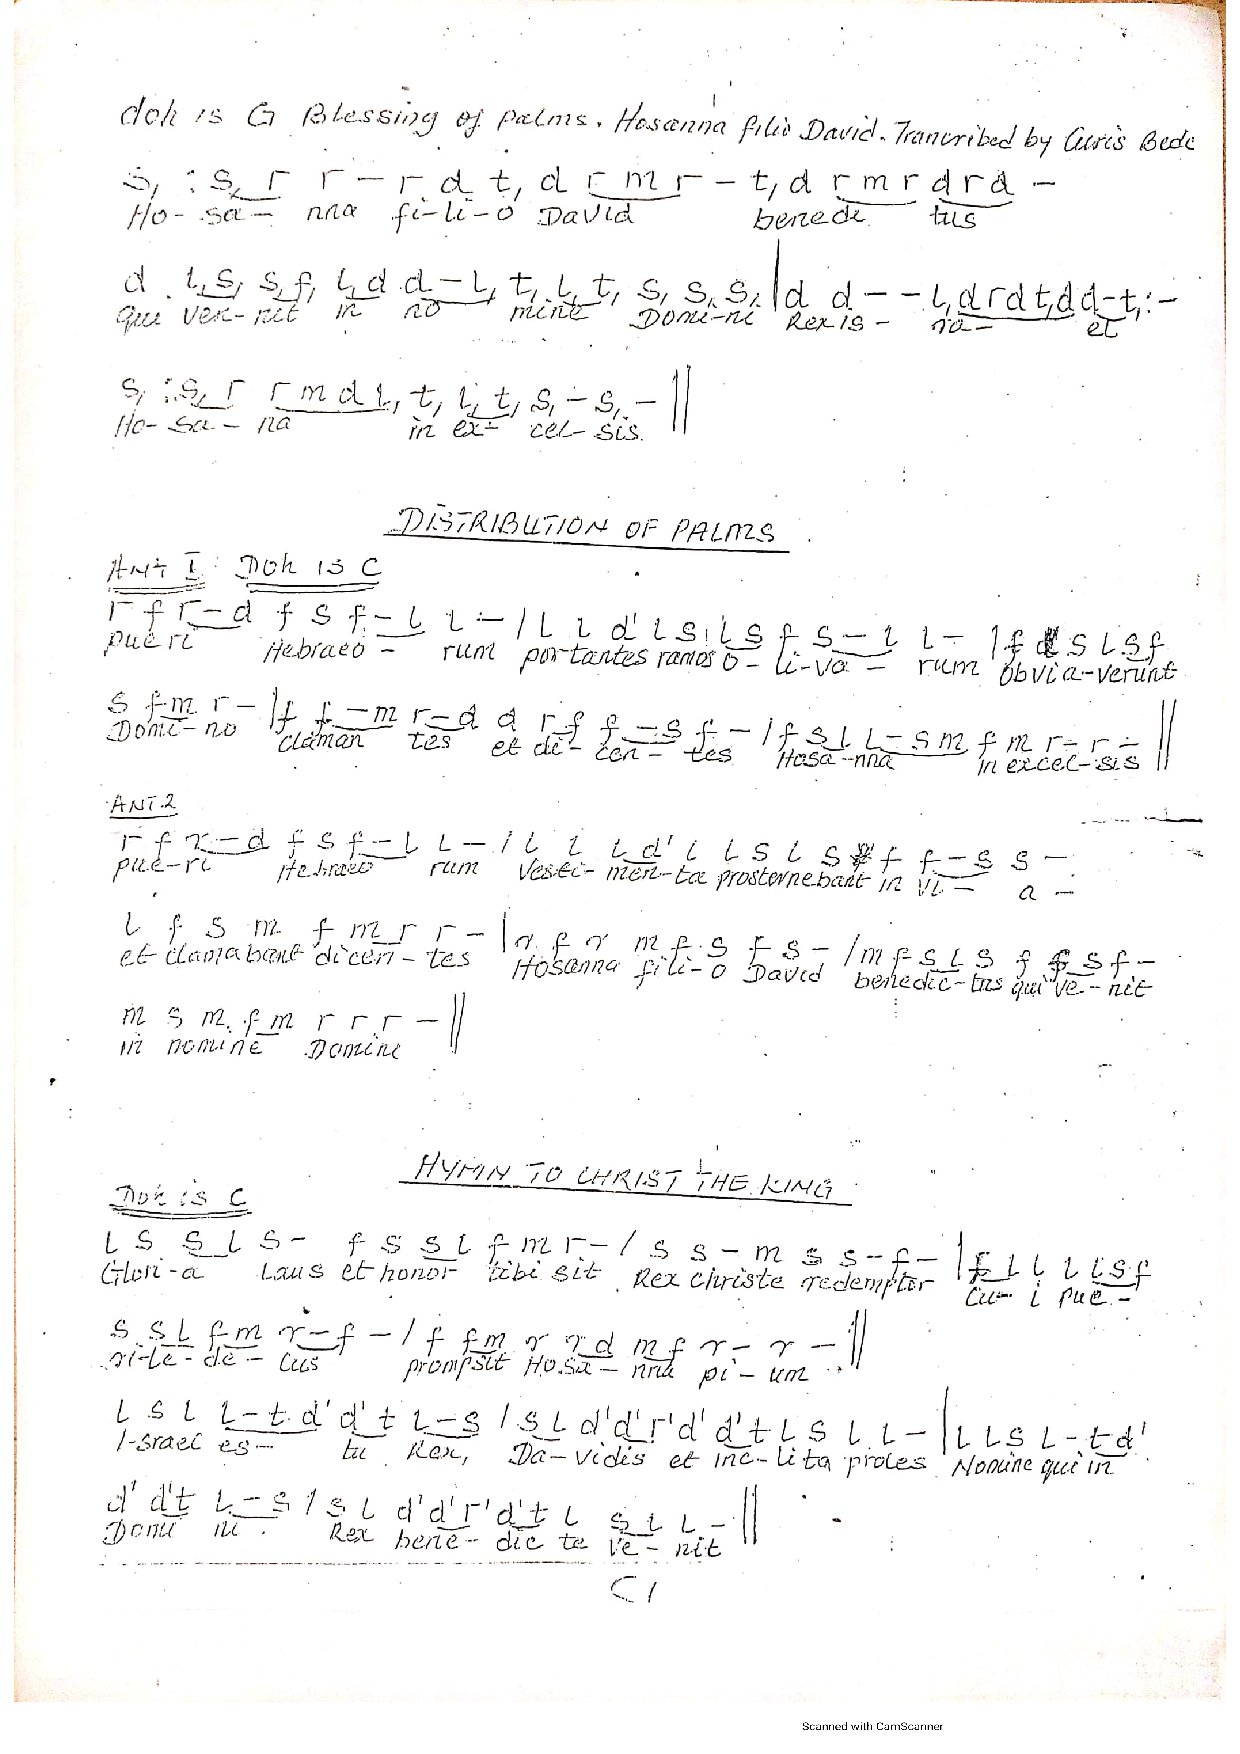 doh is G Blessing of Palms. Hosanna filio David. Transcribed by Curis Bede
s, : s, r r – r d t, d r m r – t, d r m r d r d –
Ho- sa- nna fi-li-o David benedi tus
d l, s, s, f, l, d d – l, t, l, t, s, s, s, | d d – – l, d r d t, d d – t, : –
qui ven-nit in no mine Domi-ni Rex is- ra- et
s, : s, r r m d l, t, l, t, s, – s, – ||
Ho- sa- na in ex- cel- sis.
DISTRIBUTION OF PALMS
ANT I Doh is C
r f r – d f s f – l l – / l l d' l s l s f s – l l – | f s l s f
pueri Hebraeo- rum portantes ramos o-li-va- rum obvia-verunt
s f m r – | f f – m r – d d r f f – s f – / f s l l – s m f m r – r – ||
Domi-no claman tes et di-cen-tes Hosa-nna in excel-sis
ANT.2
r f r – d f s f – l l – / l l l d' l l s l s f f – s s –
pue-ri Hebraeo rum Vesti-men-ta prosternebant in vi- a –
l f s m f m r r – | r f r m f s f s – / m f s l s f f s f –
et clamabant dicen-tes Hosanna fili-o David benedic-tus qui ve-nit
m s m f m r r r – ||
in nomine Domini
HYMN TO CHRIST THE KING
Doh is C
l s s l s – f s s l f m r – / s s – m s s – f – | f l l l l s f
Glori-a Laus et honor tibi sit Rex Christe redemptor cu- i pue-
s s l f m r – f – / f f m r r d m f r – r – ||
ri-le-de-cus prompsit Ho.sa-nna pi-um
l s l l – t d' d' t l – s / s l d' d' r' d' d' t l s l l – | l l s l – t d'
I-srael es- tu Rex, Da-vidis et inc-lita proles Nomine qui in
d' d' t l – s / s l d' d' r' d' t l s l l – ||
Domi ni Rex bene-dic te ve-nit
C1
Scanned with CamScanner